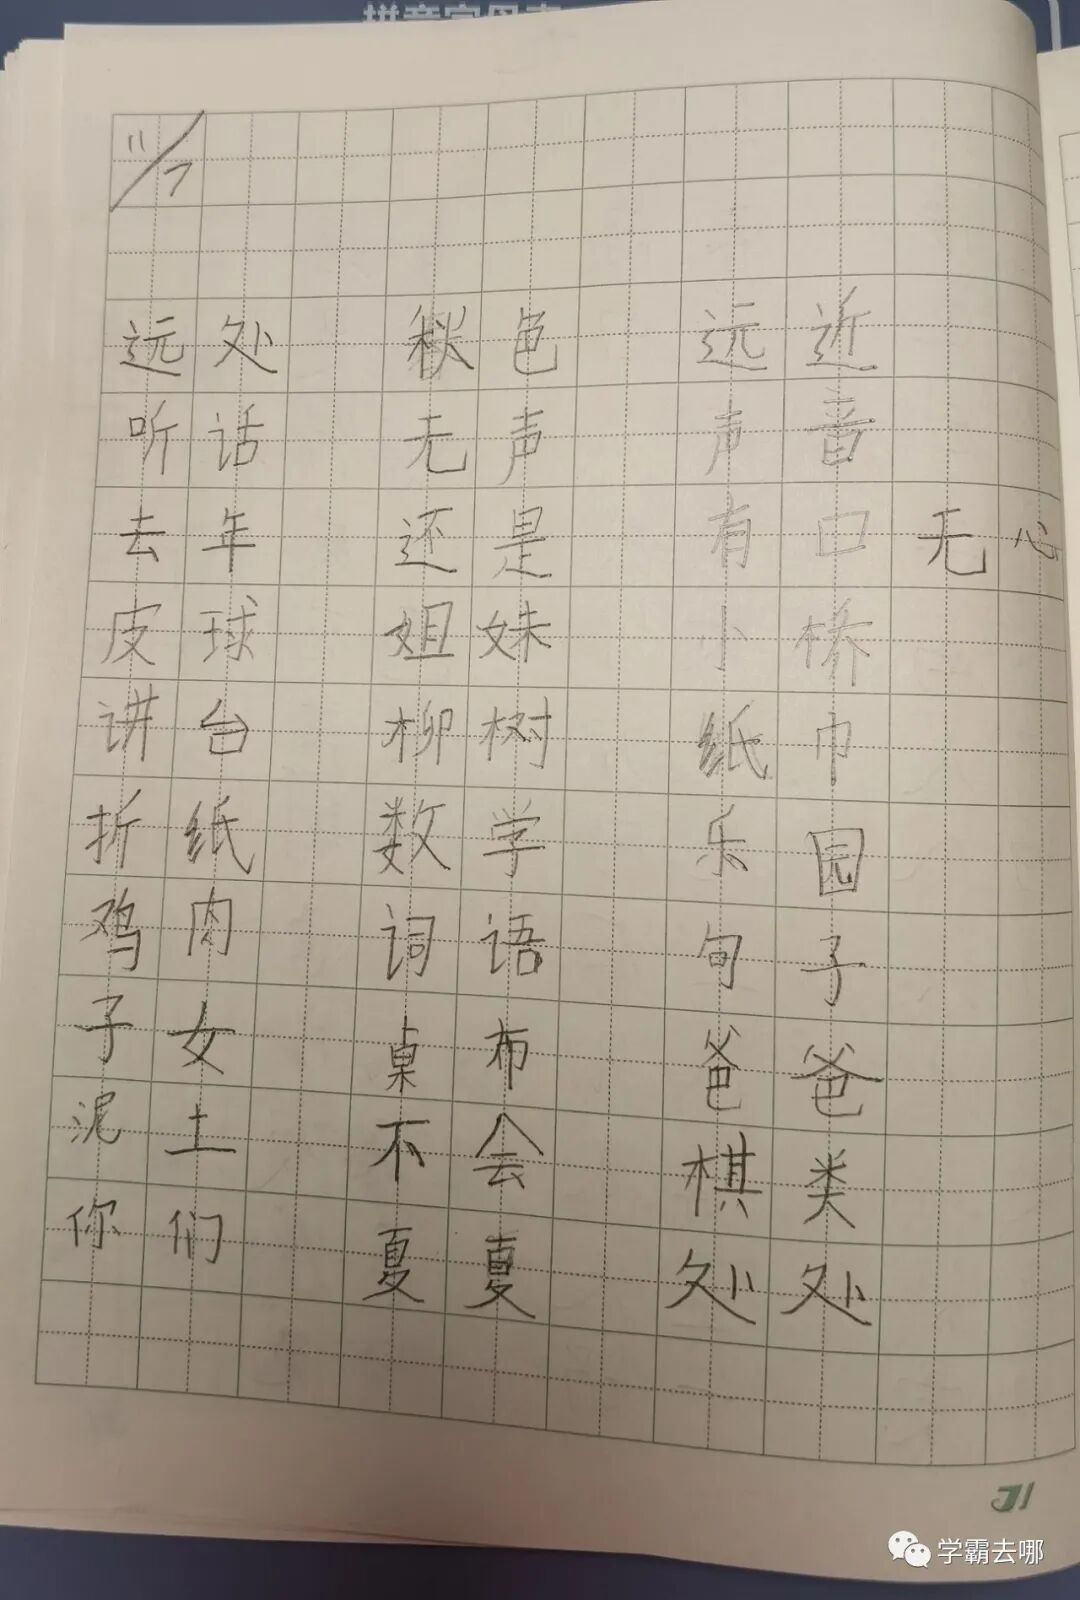 11/7
远处 秋色 远近
听话 无声 声音
去年 还是 有口无心
皮球 姐妹 小桥
讲台 柳树 纸巾
折纸 数学 乐园
鸡肉 词语 句子
子女 桌布 爸爸
泥土 不会 棋类
你们 夏夏 处处
学霸去哪